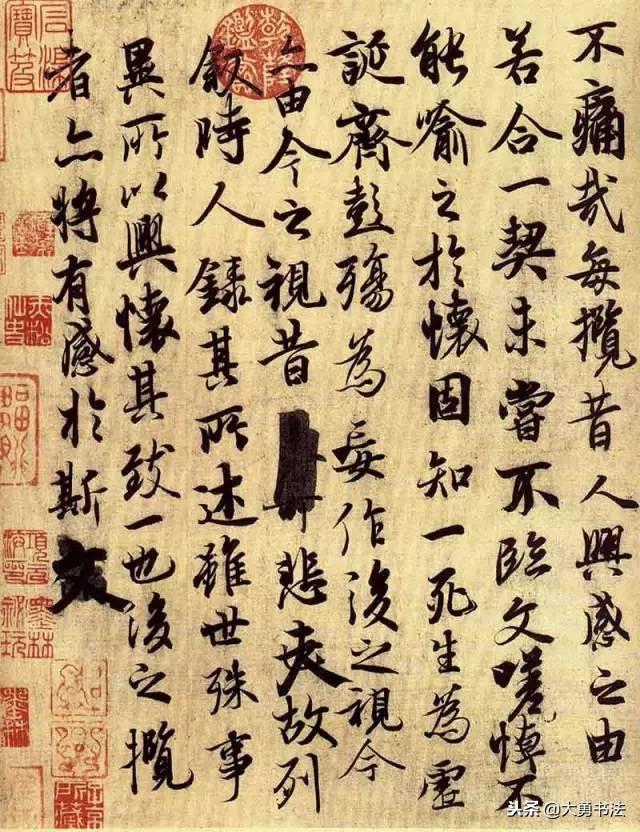 不痛哉每攬昔人興感之由
若合一契未嘗不臨文嗟悼不
能喻之於懷固知一死生為虛
誕齊彭殤為妄作後之視今
亦由今之視昔悲夫故列
敘時人錄其所述雖世殊事
異所以興懷其致一也後之攬
者亦將有感於斯文
头条@大勇书法